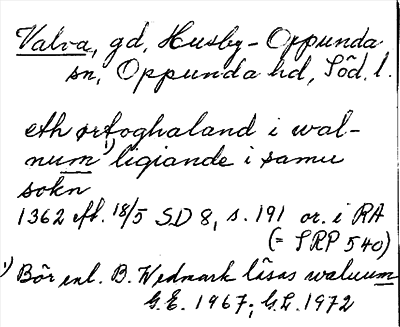 Valva, gd, Husby-Oppunda
sn, Oppunda hd, Söd. l.
eth ørfoghaland i wal-
num¹) ligiande i samu
sokn
1362 eft. 18/5 SD 8, s. 191 or. i RA
(= SRP 540)
¹) Bör enl. B. Wedmark läsas waluum
G.E. 1967, G.L. 1972